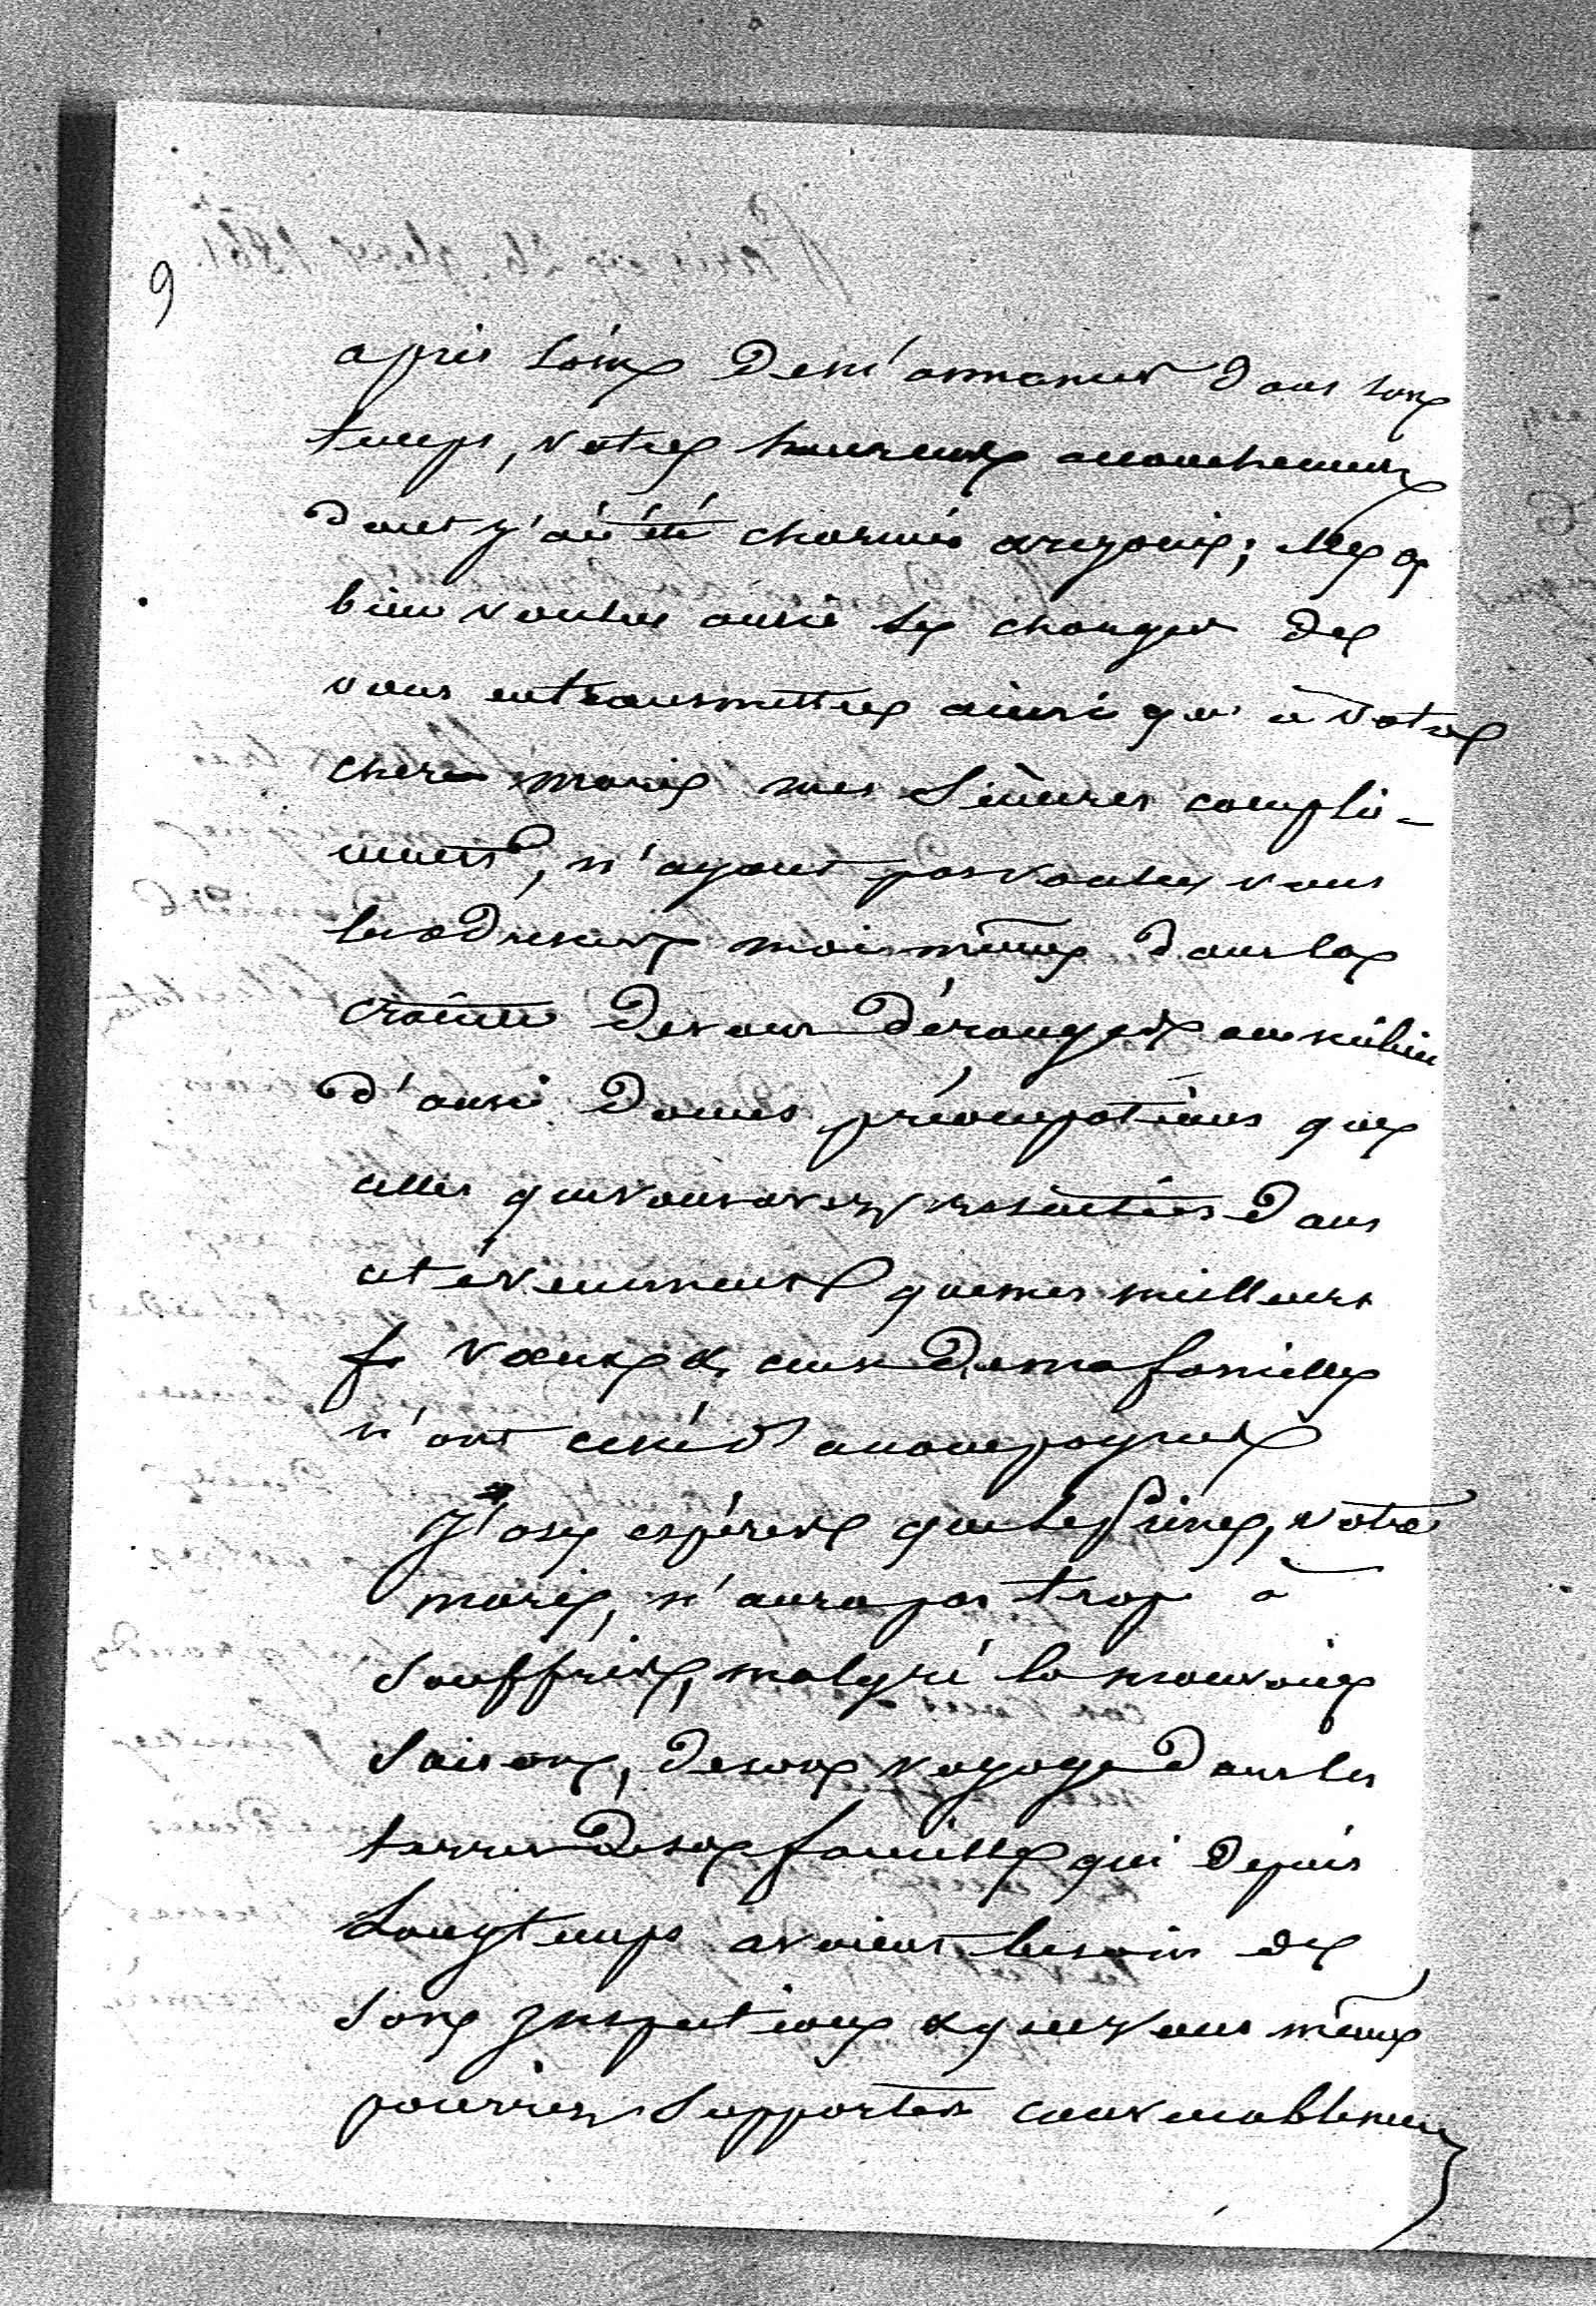 9
apris soin de m'annoncer dans son
temps, votre heureux accouchement
dont j'ai été charmés & rejouis; Elle a
bien voulue aussi se charger de
vous en transmettre ainsi qu'à votre
cher mari mes sincères compli-
ments, n'ayant pas voulu vous
les adresser moi même dans la
crainte de vous déranger au milieu
d'aussi douces préoccupations que
celles que vous avez ressenties dans
cet évènement que mes meilleurs
voeux & ceux de ma famille
n'ont cessé d'accompagner
J'ose espérer que le Prince, votre
mari, n'aura pas trop à
souffrir, malgré la mauvaise
saison, de son voyage dans les
terres de sa famille qui depuis
longtemps avaient besoin de
son inspection & que vous même
pourrez supporter convenablement